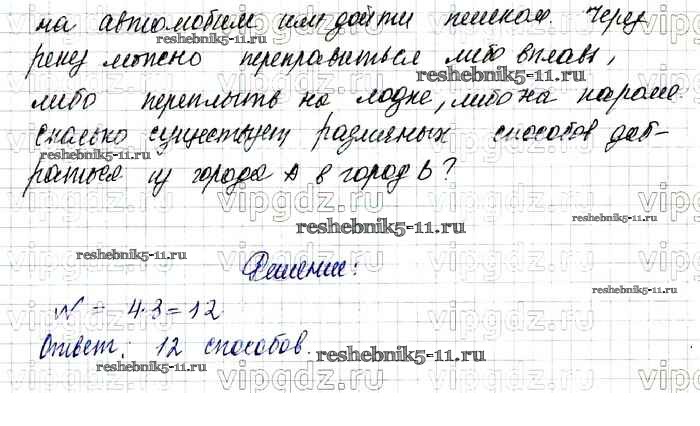 на автомобили или дойти пешком. Через
реку можно переправиться либо вплавь,
либо переплыть на лодке, либо на пароме.
Сколько существует различных способов доб-
раться из города А в город Б?
Решение:
N = 4·3=12
Ответ: 12 способов.
reshebnik5-11.ru
vipgdz.ru